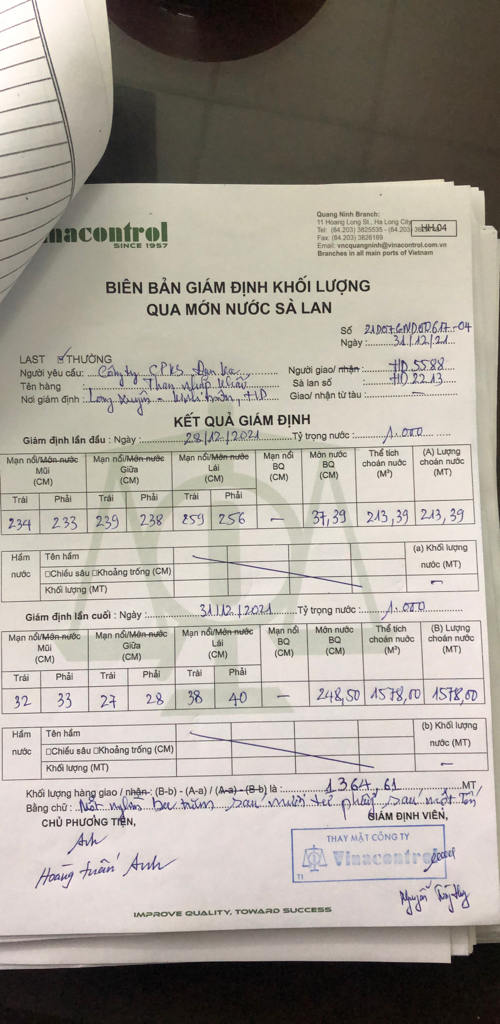 nacontrol
SINCE 1957
Quang Ninh Branch:
11 Hoang Long St., Ha Long City
Tel: (84.203) 3825535 - (84.203)
HH.04
Fax: (84.203) 3826169
Email: vncquangninh@vinacontrol.com.vn
Branches in all main ports of Vietnam
BIÊN BẢN GIÁM ĐỊNH KHỐI LƯỢNG
QUA MỚN NƯỚC SÀ LAN
Số
Ngày : 31/12/21
LAST THƯỜNG
Người yêu cầu: Công ty CPKS
Người giao/ nhận : HD 5588
Tên hàng : Than nhập khẩu
Sà lan số HD 2213
Nơi giám định :
Giao/ nhận từ tàu : -
KẾT QUẢ GIÁM ĐỊNH
Giám định lần đầu : Ngày : 28/12/2021 Tỷ trọng nước : 1.000
Mạn nổi/Mớn nước Mũi (CM) Mạn nổi/Mớn nước Giữa (CM) Mạn nổi/Mớn nước Lái (CM) Mạn nổi BQ (CM) Mớn nước BQ (CM) Thể tích choán nước (M³) (A) Lượng choán nước (MT)
Trái Phải Trái Phải Trái Phải
234 233 239 238 259 256 - 37,39 213,39 213,39
Hầm nước
Tên hầm
(a) Khối lượng nước (MT)
□Chiều sâu □Khoảng trống (CM)
Khối lượng (MT) -
Giám định lần cuối : Ngày : 31/12/2021 Tỷ trọng nước : 1.000
Mạn nổi/Mớn nước Mũi (CM) Mạn nổi/Mớn nước Giữa (CM) Mạn nổi/Mớn nước Lái (CM) Mạn nổi BQ (CM) Mớn nước BQ (CM) Thể tích choán nước (M³) (B) Lượng choán nước (MT)
Trái Phải Trái Phải Trái Phải
32 33 27 28 38 40 - 248,50 1578,00 1578,00
Hầm nước
Tên hầm
(b) Khối lượng nước (MT)
□Chiều sâu □Khoảng trống (CM)
Khối lượng (MT) -
Khối lượng hàng giao / nhận : (B-b) - (A-a) / (A-a) - (B-b) là : 1364,61 MT
Bằng chữ : Một nghìn ba trăm sáu mươi tư phẩy sáu một Tấn
CHỦ PHƯƠNG TIỆN,
GIÁM ĐỊNH VIÊN,
Anh
THAY MẶT CÔNG TY
Vinacontrol
T1
Hoàng Tuấn Anh
Nguyễn
IMPROVE QUALITY, TOWARD SUCCESS